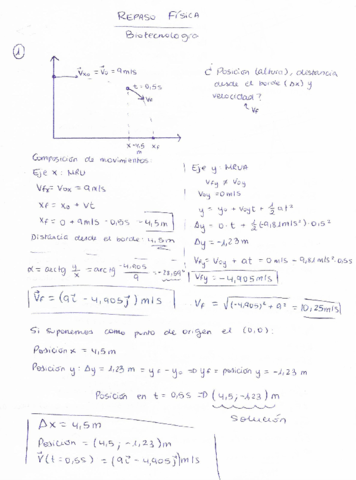 REPASO FÍSICA
Biotecnología
1
V₀ₓ = V₀ = 9m/s
t = 0,5s
Vf
x = 4,5 m
xf
¿Posición (altura), distancia desde el borde (Δx) y velocidad?
↳ Vf
Composición de movimientos:
Eje x: MRU
Vfx = V0x = 9m/s
xf = x0 + vt
xf = 0 + 9m/s · 0,5s = 4,5m
Distancia desde el borde: 4,5m
Eje y: MRUA
Vfy ≠ V0y
V0y = 0m/s
y = y0 + V0yt + ½at²
Δy = 0·t + ½(-9,81m/s²)·0,5²
Δy = -1,23m
Vfy = V0y + at = 0m/s - 9,81m/s²·0,5s
Vfy = -4,905m/s
α = arctg y/x = arctg -4,905/9 =
Vf = (9i - 4,905j) m/s
Vf = √(-4,905)² + 9² = 10,25m/s
Si suponemos como punto de origen el (0,0):
Posición x = 4,5m
Posición y: Δy = -1,23m = yf - y0 ⇒ yf = posición y = -1,23m
Posición en t = 0,5s ⇒ (4,5, -1,23) m
Solución
Δx = 4,5m
Posición = (4,5, -1,23) m
V(t=0,5s) = (9i - 4,905j) m/s